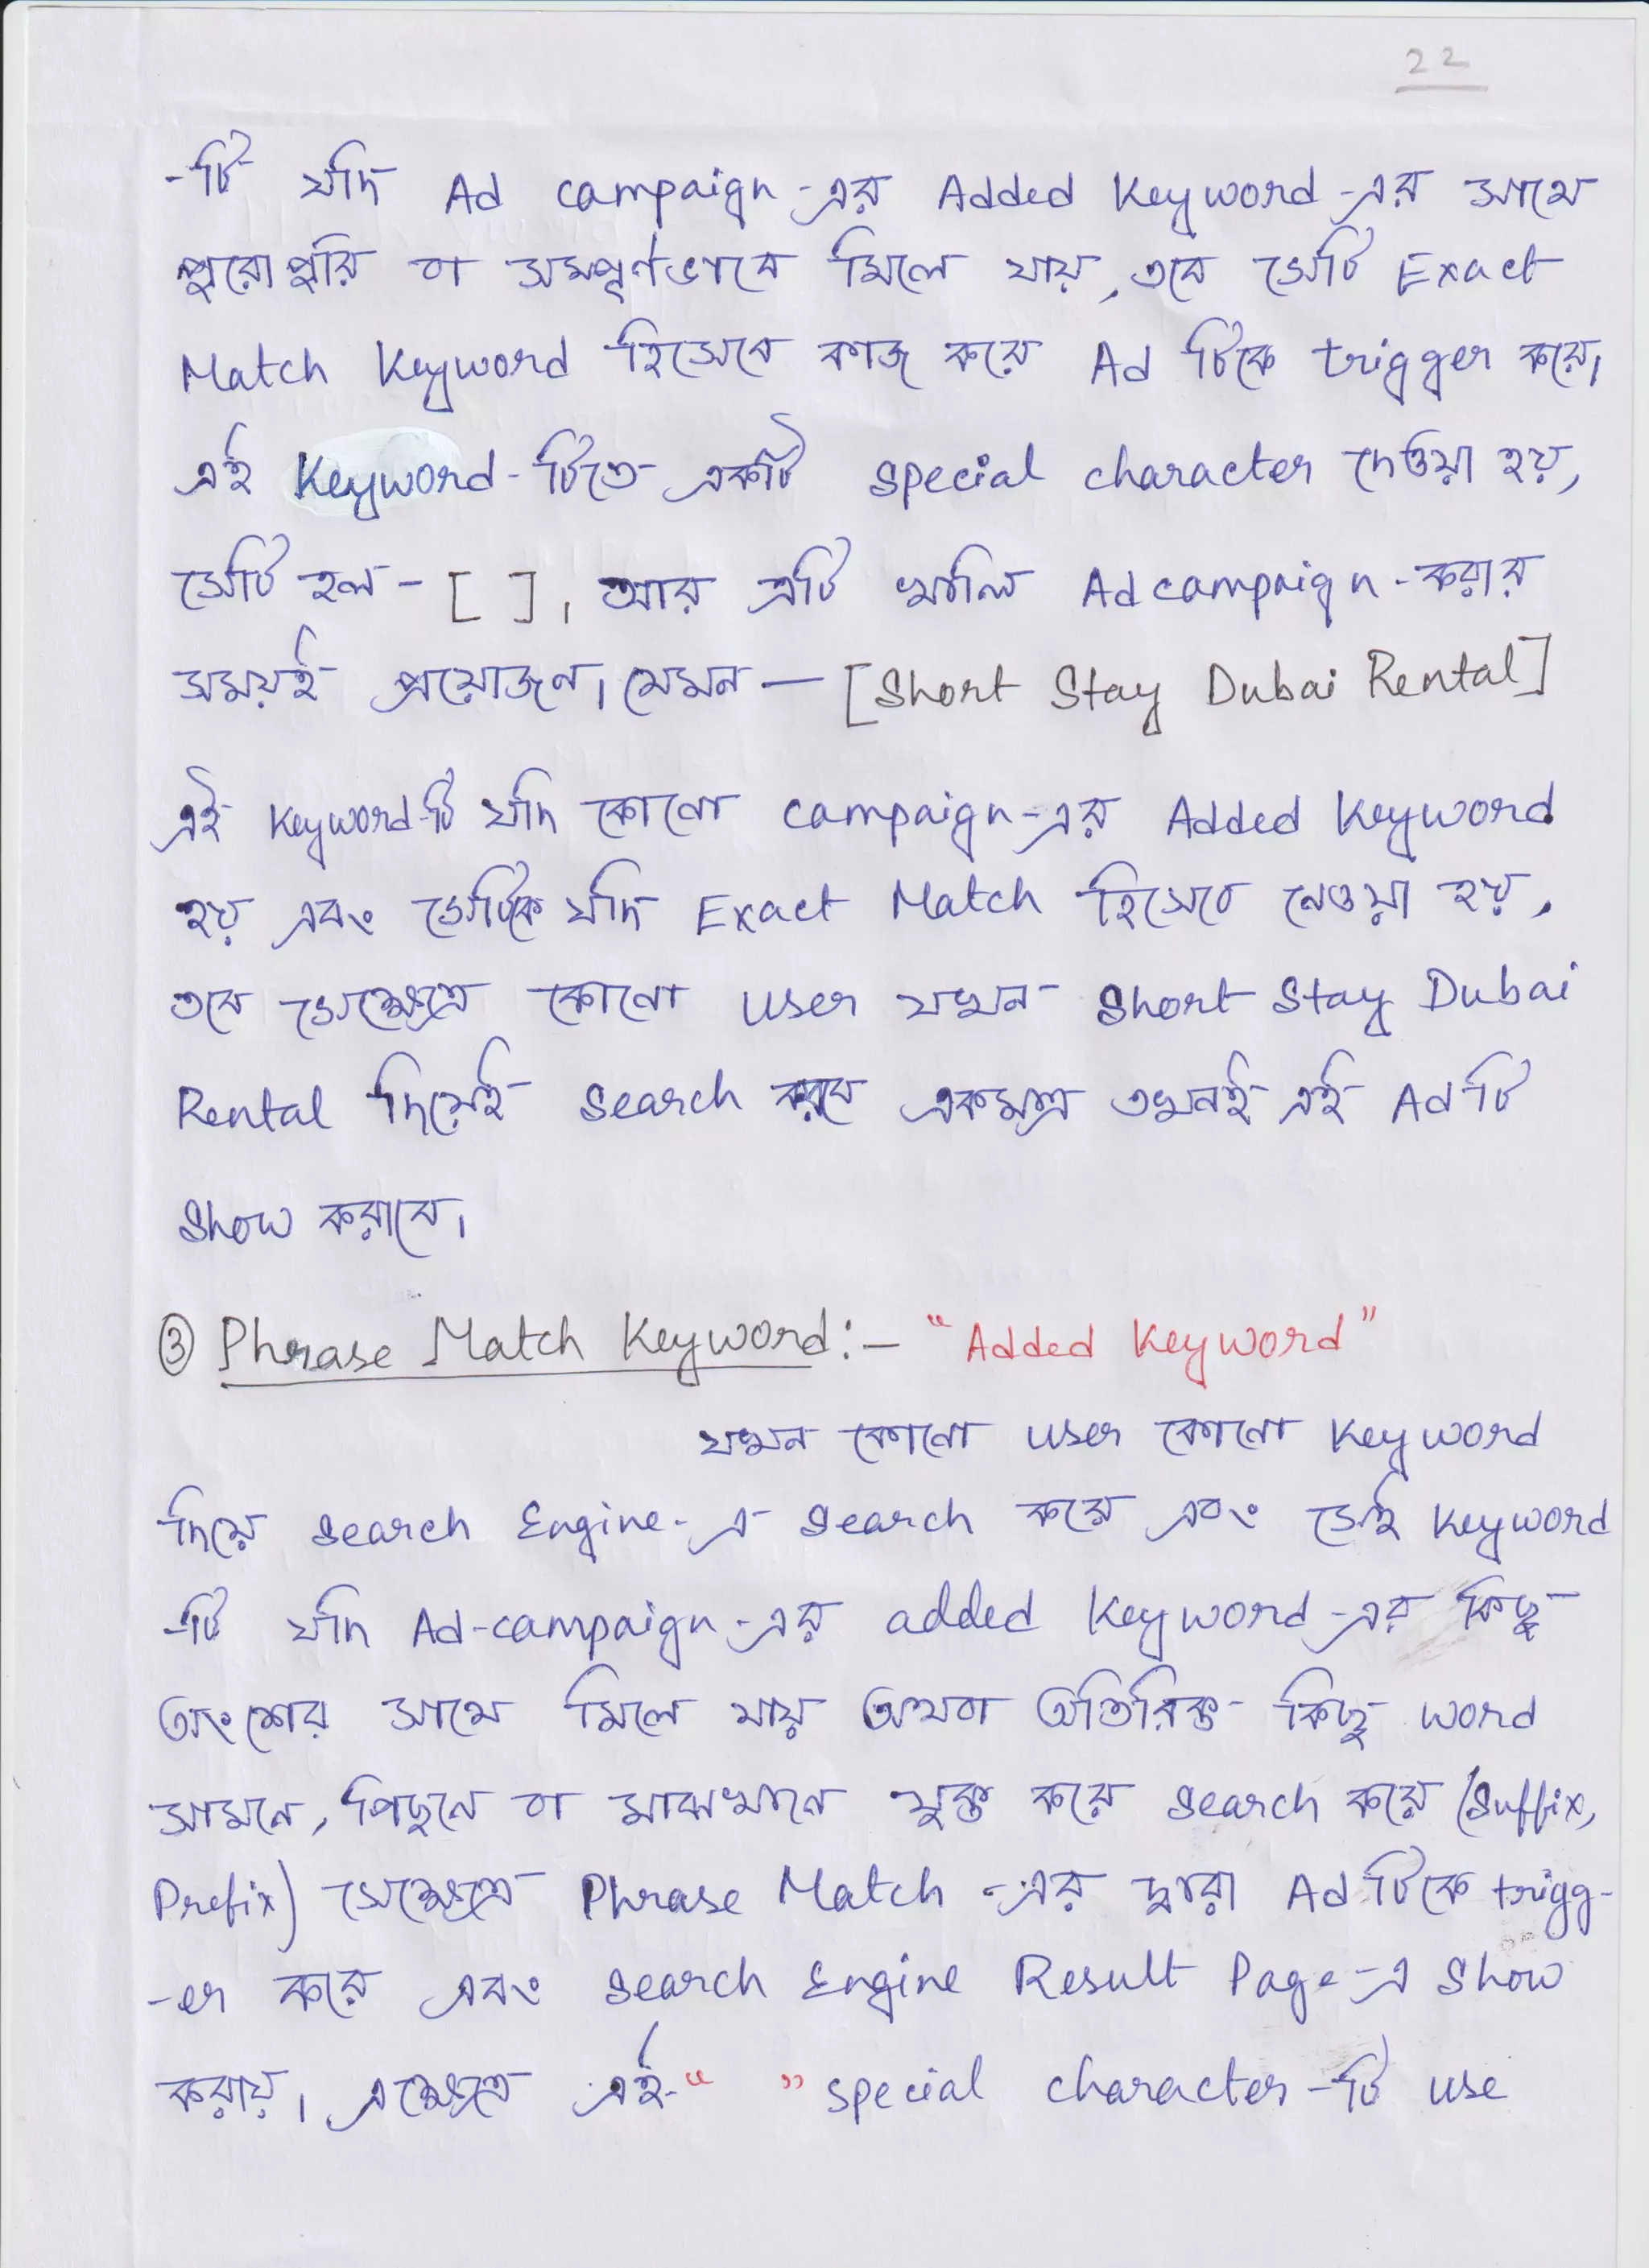 22
-টি যদি Ad campaign-এর Added Keyword-এর সাথে
পুরোপুরি বা সমপূর্ণভাবে মিলে যায়, তবে সেটি Exact
Match Keyword হিসেবে কাজ করে Ad টিকে trigger করে।
এই Keyword-টিতে একটি special character দেওয়া হয়,
সেটি হল - [ ]। আর এটি খালি Ad campaign-করার
সময়ই প্রয়োজন। যেমন — [Short Stay Dubai Rental]
এই Keyword-টি যদি কোনো campaign-এর Added Keyword
হয় এবং সেটিকে যদি Exact Match হিসেবে নেওয়া হয়,
তবে সেক্ষেত্রে কোনো user যখন Short Stay Dubai
Rental দিয়েই search করবে একমাত্র তখনই এই Ad টি
Show করাবে।
③ Phrase Match Keyword:— "Added Keyword"
যখন কোনো user কোনো Keyword
দিয়ে search Engine-এ search করে এবং সেই Keyword
-টি যদি Ad-campaign-এর added Keyword-এর কিছু
অংশের সাথে মিলে যায় অথবা অতিরিক্ত কিছু word
সামনে, পিছনে বা মাঝখানে যুক্ত করে search করে (Suffix,
Prefix) সেক্ষেত্রে Phrase Match-এর দ্বারা Ad টিকে trigg-
-er করে এবং search Engine Result Page-এ Show
করায়। এক্ষেত্রে এই-" " special character-টি use